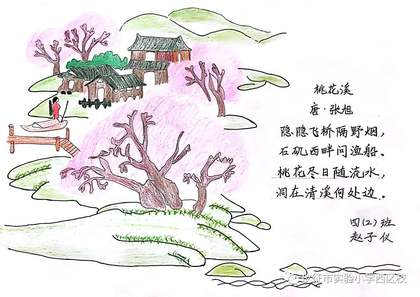 桃花溪
唐·张旭
隐隐飞桥隔野烟，
石矶西畔问渔船。
桃花尽日随流水，
洞在清溪何处边。
四(2)班
赵子仪
市实验小学西区校